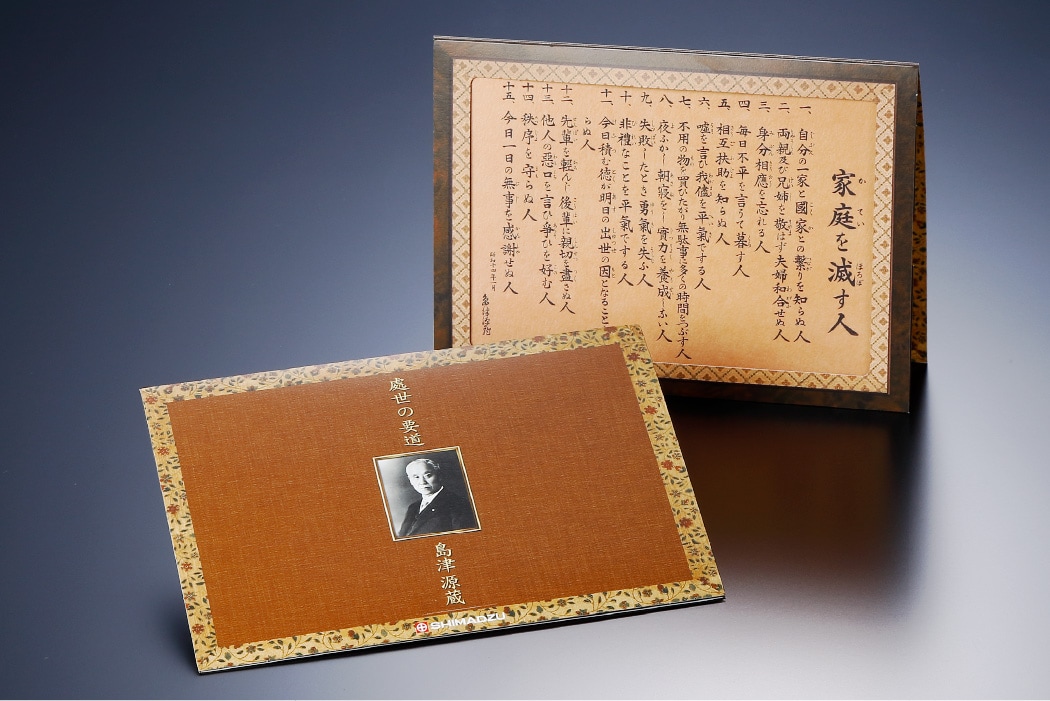 家庭を滅す人
一、自分の一家と國家との繋りを知らぬ人
二、両親及び兄姉を敬はず夫婦和合せぬ人
三、身分相應を忘れる人
四、毎日不平を言うて暮す人
五、相互扶助を知らぬ人
六、嘘を言ひ我儘を平氣でする人
七、不用の物を買ひたがり無駄事に多くの時間をつぶす人
八、夜ふかし朝寝をし實力を養成しない人
九、失敗したとき勇氣を失ふ人
十、非禮なことを平氣でする人
十一、今日積む徳が明日の出世の因となること
らぬ人
十二、先輩を軽んじ後輩に親切を盡さぬ人
十三、他人の惡口を言ひ爭ひを好む人
十四、秩序を守らぬ人
十五、今日一日の無事を感謝せぬ人
昭和十四年一月
處世の要道
島津源蔵
SHIMADZU